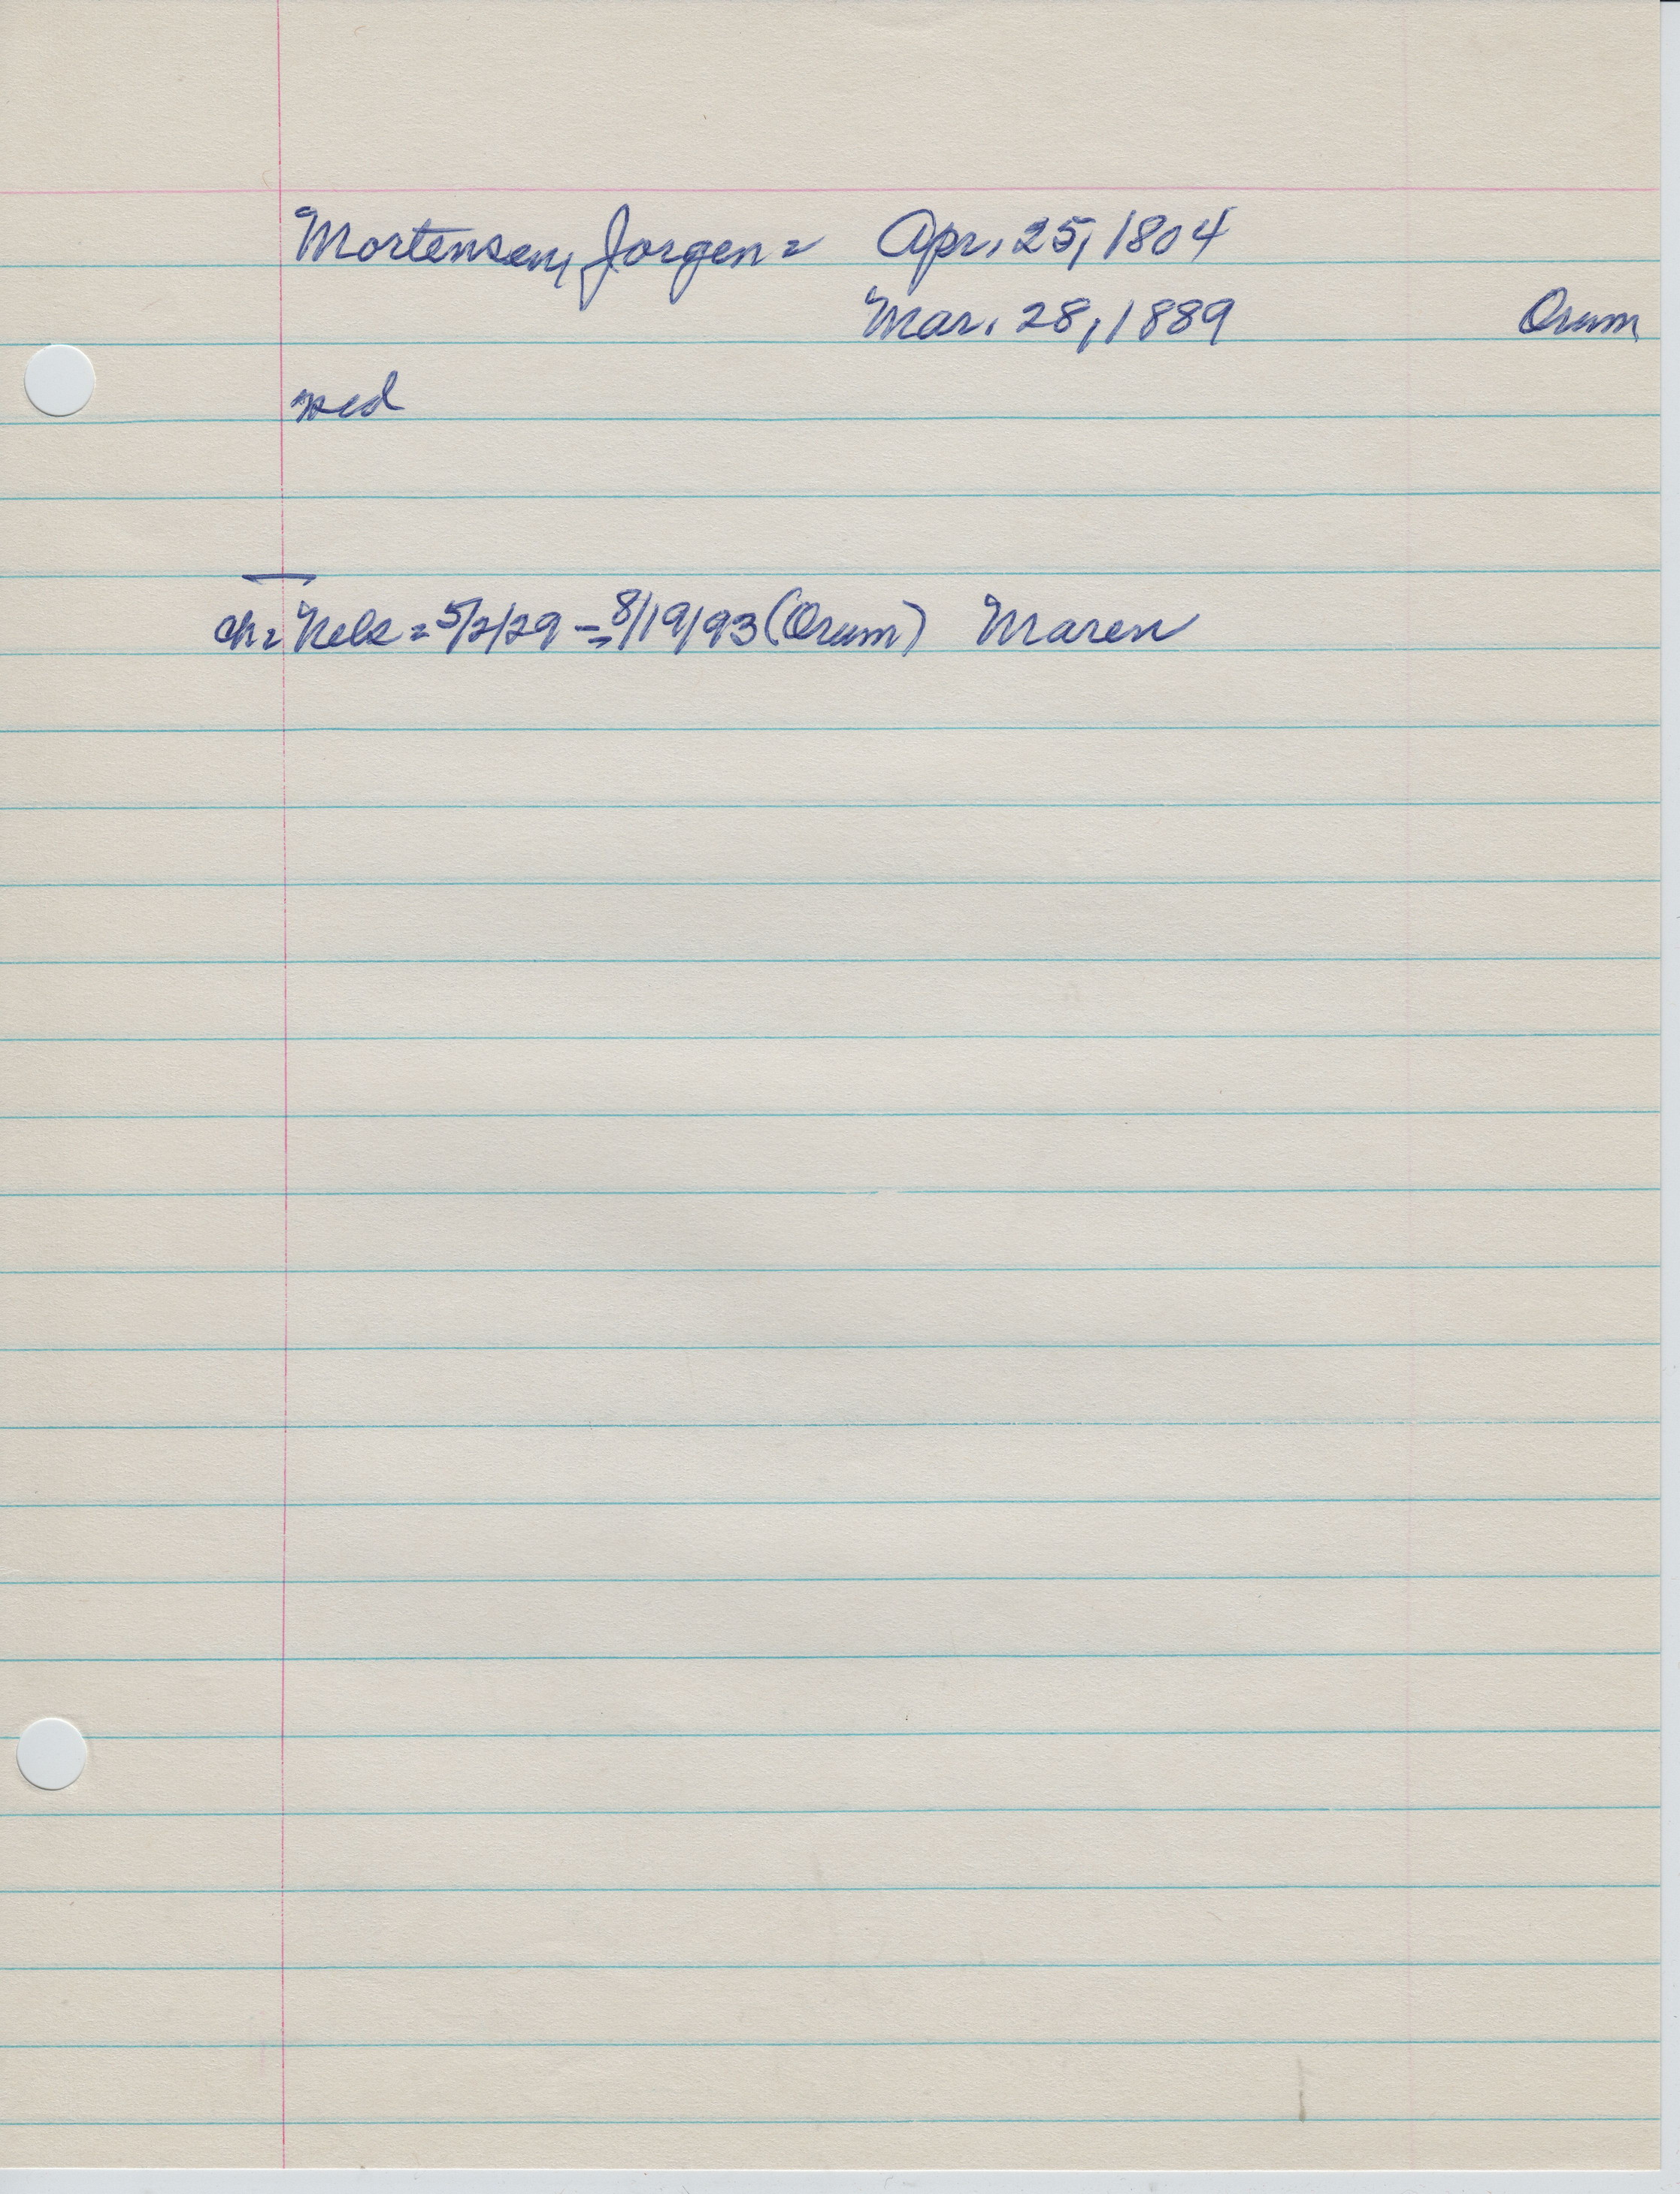 Mortensen, Jorgen = Apr. 25, 1804
Mar. 28, 1889 Orum
wed
ch = Nels = 5/2/29 - 8/19/93 (Orum) Maren